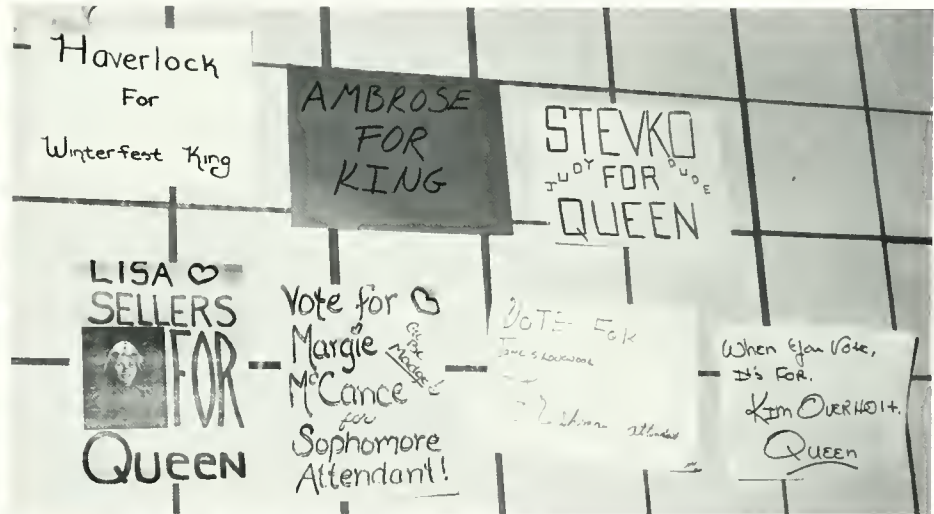 Haverlock
For
Winterfest King
AMBROSE
FOR
KING
STEVKO
JUDY FOR DUDE
QUEEN
LISA
SELLERS
FOR
QUEEN
Vote for
Margie
McCance
for
Sophomore
Attendant!
VOTE FOR
When You Vote,
It's FOR.
KIM OVERHOLT.
Queen